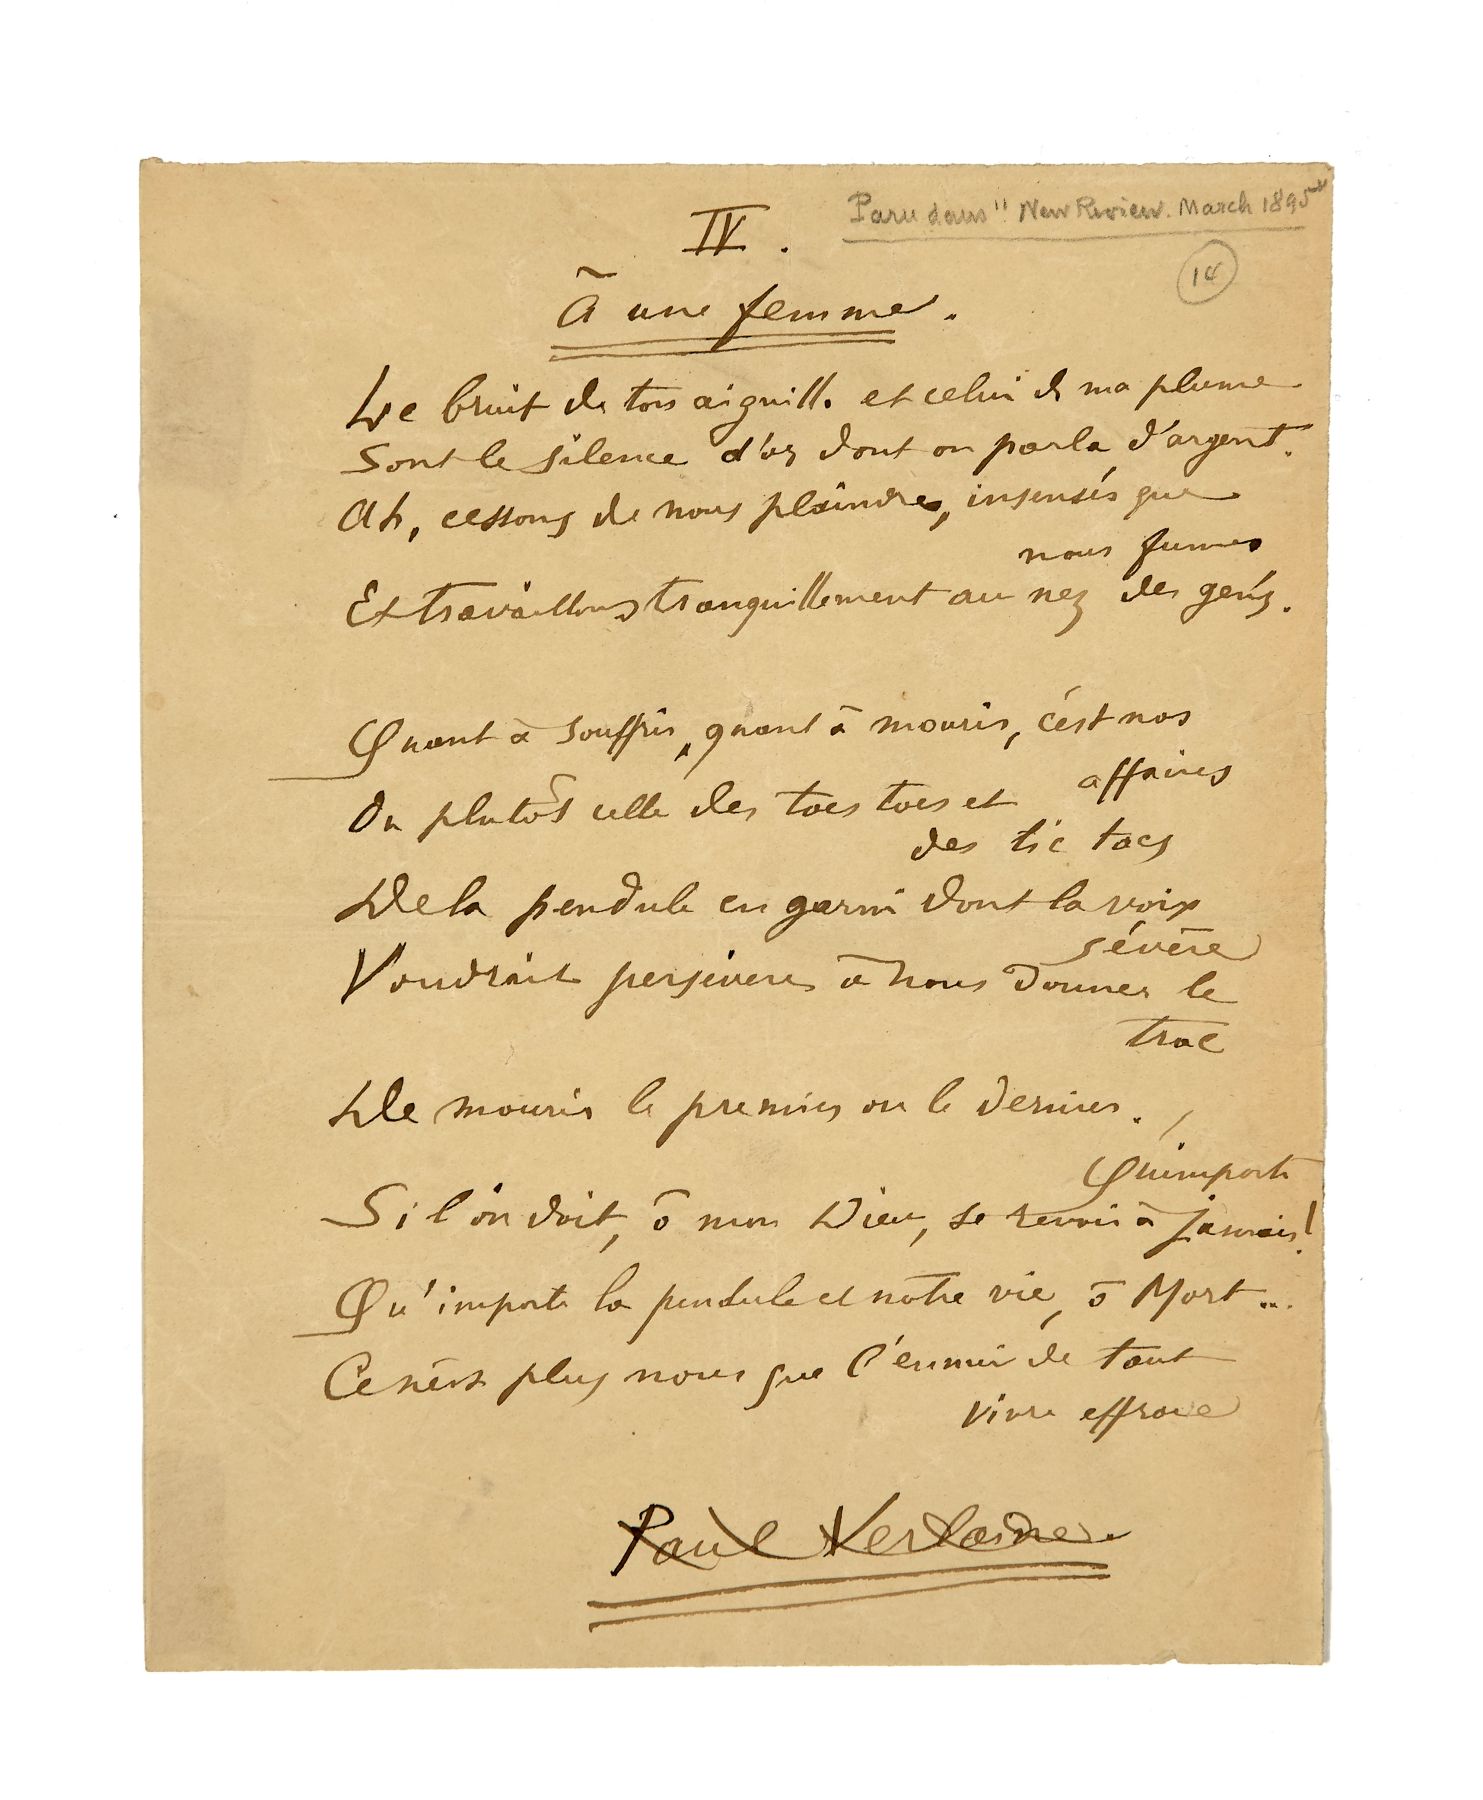 Paru dans "New Review. March 1895"
IV.
14
À une femme.
Le bruit de ton aiguille et celui de ma plume
Sont le silence d'or dont on parla d'argent.
Ah, cessons de nous plaindre, insensés que
nous fumes
Et travaillons tranquillement au nez des gens.
Quant à souffrir, quant à mourir, c'est nos
affaires
Ou plutôt celle des tocs tocs et
des tic tacs
De la pendule en garni dont la voix
sévère
Voudrait persévérer à nous donner le
trac
De mourir le premier ou le dernier.
Qu'importe
Si l'on doit, ô mon Dieu, se revoir à jamais!
Qu'importe la pendule et notre vie, ô Mort...
Ce n'est plus nous que l'ennui de tant
vivre effraie
Paul Verlaine.